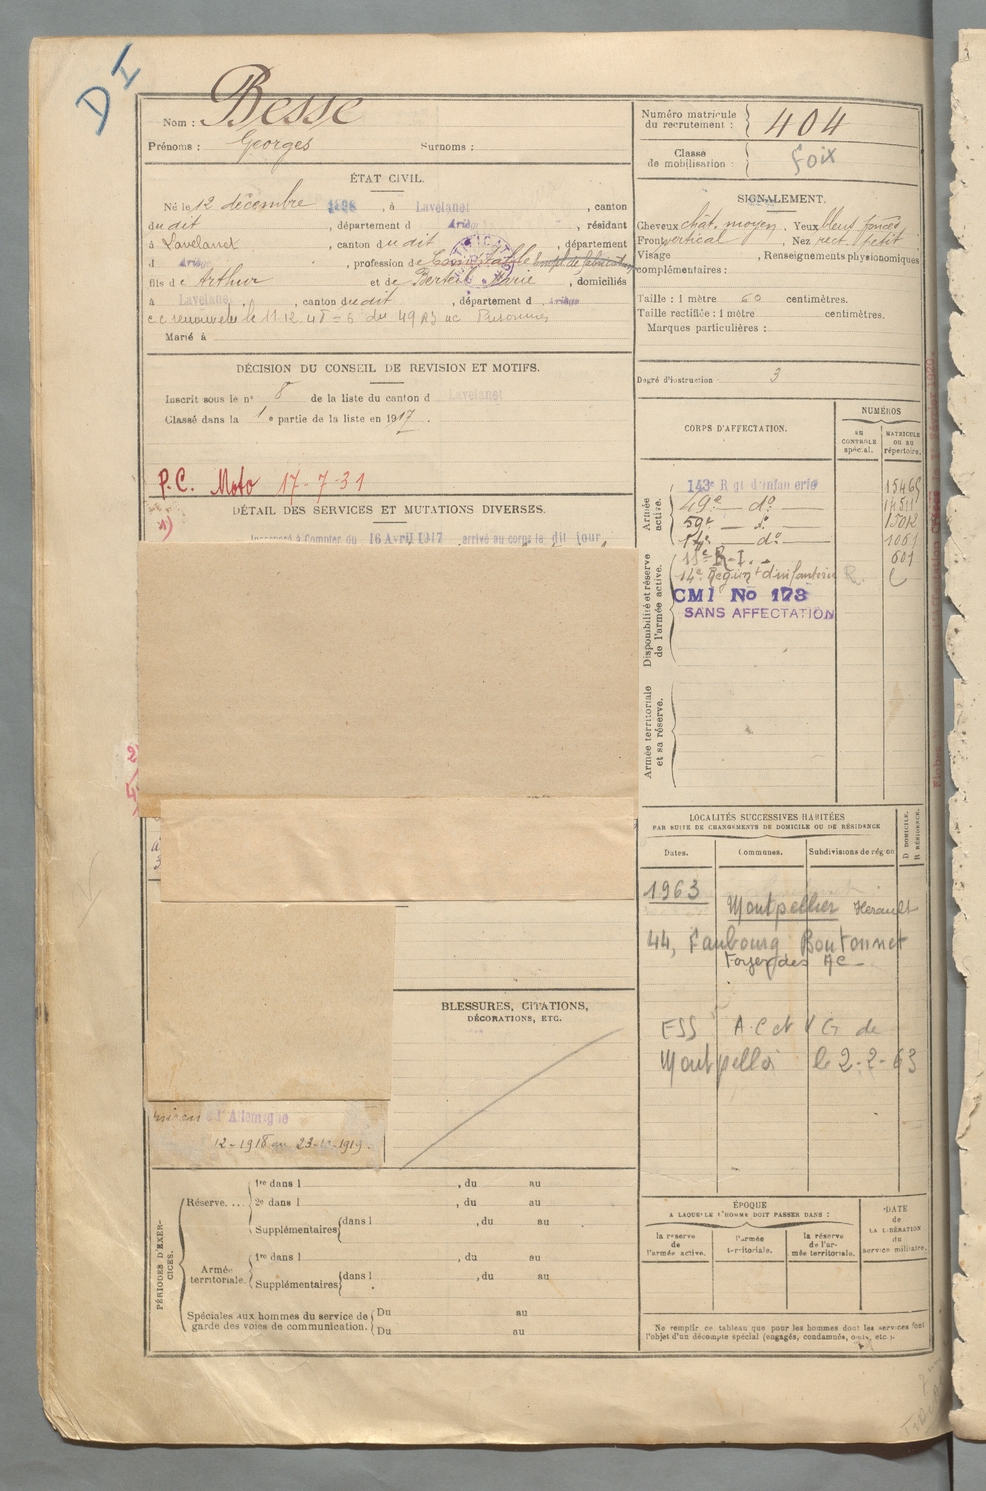 D I
Nom : Besse
Prénoms : Georges Surnoms :
ÉTAT CIVIL.
Né le 12 décembre 1898, à Lavelanet, canton
du dit, département d Ariège, résidant
à Lavelanet, canton du dit, département
d Ariège, profession de Comptable
fils de Arthur et de Marie, domiciliés
à Lavelanet, canton du dit, département d Ariège
Marié à
DÉCISION DU CONSEIL DE REVISION ET MOTIFS.
Inscrit sous le n° 8 de la liste du canton d Lavelanet
Classé dans la 1e partie de la liste en 1917.
P.C. Moto 17-7-31
DÉTAIL DES SERVICES ET MUTATIONS DIVERSES.
Incorporé à Compter du 16 Avril 1917 arrivé au corps le dit jour
BLESSURES, CITATIONS,
DÉCORATIONS, ETC.
l'Allemagne
12-1918 au 23-12-1919.
PÉRIODES D'EXERCICES.
Réserve. ... 1re dans l , du au
2e dans l , du au
Supplémentaires dans l , du au
Armée territoriale. 1re dans l , du au
Supplémentaires dans l , du au
Spéciales aux hommes du service de Du au
garde des voies de communication. Du au
Numéro matricule
du recrutement : 404
Classe
de mobilisation : Foix
SIGNALEMENT.
Cheveux chât. moyen, Yeux bleus foncés
Front vertical, Nez rect. petit
Visage , Renseignements physionomiques
complémentaires :
Taille : 1 mètre 60 centimètres.
Taille rectifiée : 1 mètre centimètres.
Marques particulières :
Degré d'instruction 3
CORPS D'AFFECTATION.
NUMÉROS
AU CONTRÔLE spécial.
MATRICULE OU AU répertoire.
Armée active.
143e Rgt d'infanterie
49e — do —
59e — do —
14e — do — 1061
Disponibilité et réserve de l'armée active.
R.I. 601
14e Régiment d'infanterie
CMI No 173
SANS AFFECTATION
Armée territoriale et sa réserve.
LOCALITÉS SUCCESSIVES HABITÉES
PAR SUITE DE CHANGEMENTS DE DOMICILE OU DE RÉSIDENCE
Dates. Communes. Subdivisions de région
D DOMICILE.
R RÉSIDENCE.
1963
Montpellier Herault
44, Faubourg Boutonnet
Foyer des AC
ESS A.C et V G de
Montpellier le 2-2-63
ÉPOQUE
A LAQUELLE L'HOMME DOIT PASSER DANS :
la réserve de l'armée active.
l'armée territoriale.
la réserve de l'armée territoriale.
DATE
de
LA LIBÉRATION
du
service militaire.
Ne remplir ce tableau que pour les hommes dont les services font
l'objet d'un décompte spécial (engagés, condamnés, omis, etc.).